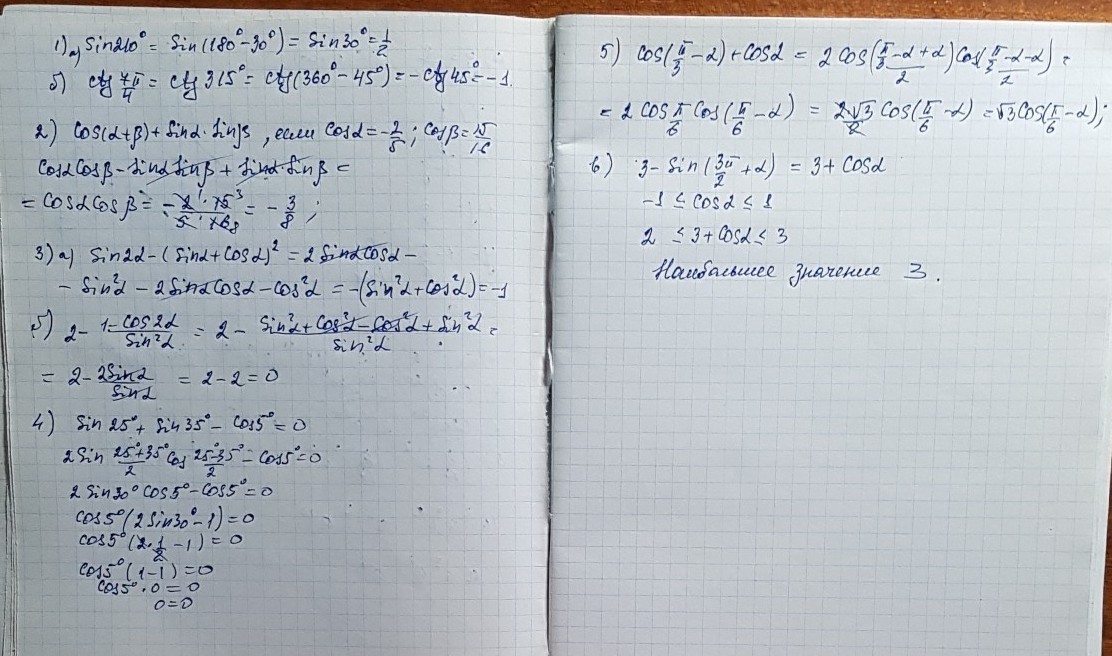 1) а) sin210° = sin(180°-30°) = sin30° = 1/2
б) ctg 7π/4 = ctg 315° = ctg(360°-45°) = -ctg45° = -1.
2) cos(α+β) + sinα·sinβ , если cosα = -2/5 ; cosβ = 15/16
cosαcosβ - sinαsinβ + sinα·sinβ =
= cosαcosβ = -2·15/5·16 = -3/8 ;
3) а) sin2α - (sinα+cosα)² = 2sinαcosα -
- sin²α - 2sinαcosα - cos²α = -(sin²α+cos²α) = -1
б) 2 - 1-cos2α/sin²α = 2 - sin²α+cos²α-cos²α+sin²α/sin²α =
= 2 - 2sinα/sinα = 2-2 = 0
4) sin25° + sin35° - cos5° = 0
2sin 25°+35°/2 cos 25°-35°/2 - cos5° = 0
2sin30°cos5° - cos5° = 0
cos5°(2sin30°-1) = 0
cos5°(2·1/2 -1) = 0
cos5°(1-1) = 0
cos5°·0 = 0
0=0
5) cos(π/3 - α) + cosα = 2cos(π/3-α+α/2)cos(π/3-α-α/2) =
= 2cos π/6 cos(π/6 - α) = 2√3/2 cos(π/6 - α) = √3cos(π/6 - α);
6) 3 - sin(3π/2 + α) = 3 + cosα
-1 ≤ cosα ≤ 1
2 ≤ 3+cosα ≤ 3
Наибольшее значение 3.